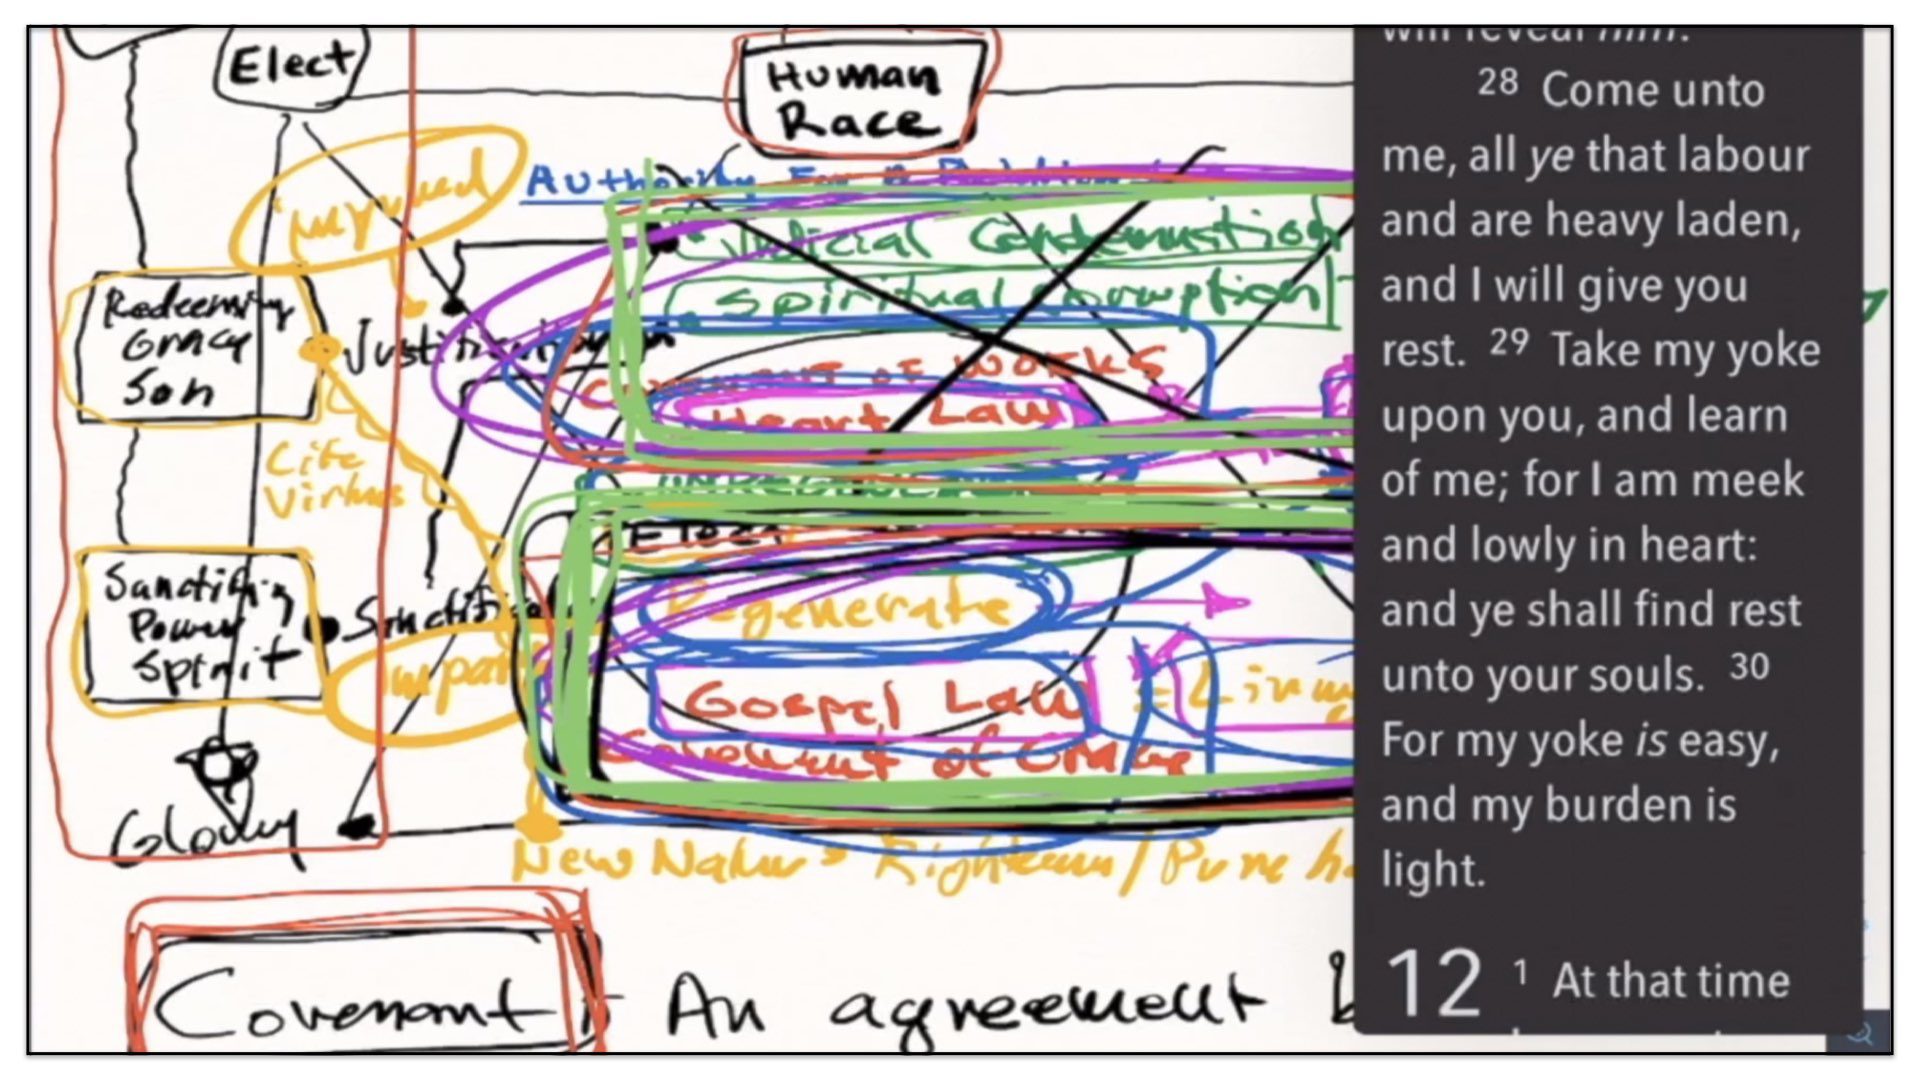 Elect
Human
Race
Authority For a
Judicial Condemnation
Spiritual corruption
Redeeming
Grace
Son
Justification
Covenant of Works
Heart Law
Life
Virtues
Elect
Sanctifying
Power
Spirit
Regenerate
Gospel Law
= Living
Covenant of Grace
Glory
New Nature = Righteous / Pure
Covenant : An agreement b
will reveal him.
28 Come unto
me, all ye that labour
and are heavy laden,
and I will give you
rest. 29 Take my yoke
upon you, and learn
of me; for I am meek
and lowly in heart:
and ye shall find rest
unto your souls. 30
For my yoke is easy,
and my burden is
light.
12 1 At that time